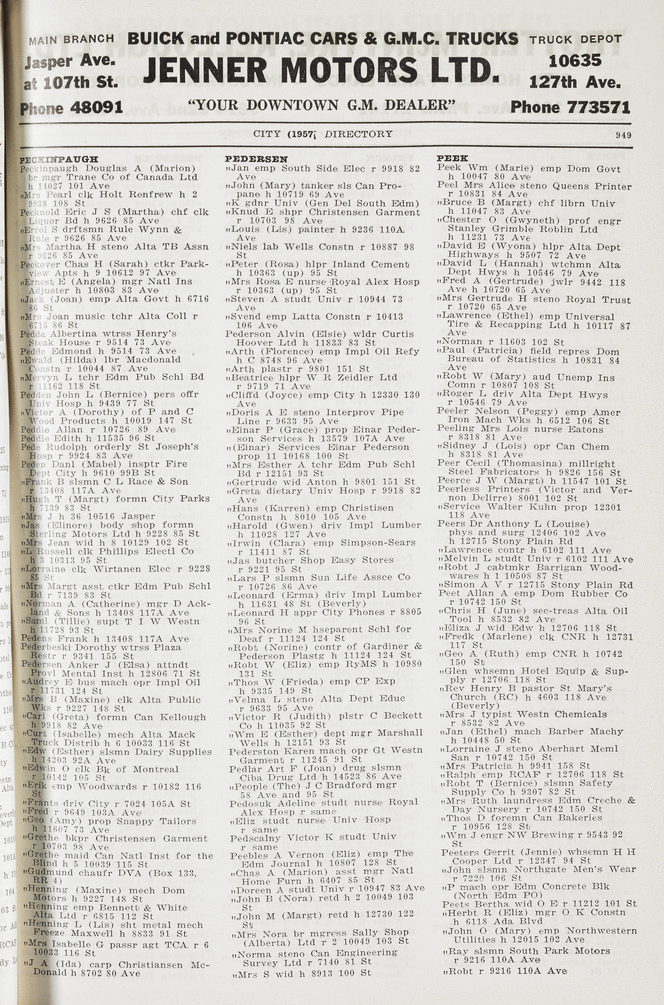 MAIN BRANCH BUICK and PONTIAC CARS & G.M.C. TRUCKS TRUCK DEPOT
Jasper Ave. at 107th St. JENNER MOTORS LTD. 10635 127th Ave.
Phone 48091 "YOUR DOWNTOWN G.M. DEALER" Phone 773571
CITY (1957) DIRECTORY 949
PECKINPAUGH
Peckinpaugh Douglas A (Marion)
br mgr Trans Co of Canada Ltd
h 14027 101 Ave
„Mrs Pearl clk Holt Renfrew h 2
9938 108 St
Pecknold Eric J S (Martha) chf clk
Liquor Bd h 9626 85 Ave
„Errol S drftsmn Rule Wynn &
Rule r 9626 85 Ave
„Mrs Martha H steno Alta TB Assn
r 9626 85 Ave
Peckover Chas H (Sarah) ctkr Park-
view Apts h 9 10612 97 Ave
„Ernest E (Angela) mgr Natl Ins
Adjuster h 10803 83 Ave
„Jack (Joan) emp Alta Govt h 6716
86 St
„Mrs Joan music tchr Alta Coll r
6716 86 St
Pedda Albertina wtrss Henry's
Steak House r 9514 73 Ave
Pedde Edmond h 9514 73 Ave
„Ewald (Hilda) lbr Macdonald
Constn r 10044 87 Ave
„Mervyn L tchr Edm Pub Schl Bd
r 11162 118 St
Pedden John L (Bernice) pers offr
Univ Hosp h 9439 77 St
„Victor A (Dorothy) of P and C
Wood Products h 10019 147 St
Peddie Allan r 10726 89 Ave
Peddle Edith h 11535 96 St
Pede Rudolph orderly St Joseph's
Hosp r 9924 83 Ave
Peden Danl (Mabel) insptr Fire
Dept City h 9610 99B St
„Frank B slsmn C L Race & Son
r 13408 117A Ave
„Hugh T (Margt) formn City Parks
h 7139 83 St
„Mrs J h 36 10516 Jasper
„Jas (Elinore) body shop formn
Sterling Motors Ltd h 9228 85 St
„Mrs Jean wid h 8 10129 102 St
„L Russell clk Phillips Electl Co
h 3 10313 95 St
„Lorraine clk Wirtanen Elec r 9228
85 St
„Mrs Margt asst ctkr Edm Pub Schl
Bd r 7139 83 St
„Norman A (Catherine) mgr D Ack-
land & Sons h 13408 117A Ave
„Saml (Tillie) supt T I W Westn
h 11728 93 St
Pedens Frank h 13408 117A Ave
Pederbeski Dorothy wtrss Plaza
Confr r 9341 155 St
Pedersen Anker J (Elsa) attndt
Provl Mental Inst h 12806 71 St
„Audrey E bus mach opr Impl Oil
r 11731 124 St
„Mrs B (Maxine) clk Alta Public
Wks r 9227 148 St
„Carl (Greta) formn Can Kellough
h 9918 82 Ave
„Curt (Isabelle) mech Alta Mack
Truck Distrib h 6 10033 116 St
„Edw (Esther) slsmn Dairy Supplies
h 14203 92A Ave
„Edwin O clk Bk of Montreal
r 10142 105 St
„Erik emp Woodwards r 10182 116
St
„Frants driv City r 7024 105A St
„Fred r 9649 103A Ave
„Geo (Amy) prop Snappy Tailors
h 11607 73 Ave
„Grethe bkpr Christensen Garment
r 10703 98 Ave
„Grethe maid Can Natl Inst for the
Blind h 5 10039 115 St
„Gudmund chaufr DVA (Box 133,
RR 4)
„Henning (Maxine) mech Dom
Motors h 9227 148 St
„Henning emp Bennett & White
Alta Ltd r 6815 112 St
„Henning L (Lis) sht metal mech
Freeze Maxwell h 8833 91 St
„Mrs Isabelle G passr agt TCA r 6
10033 116 St
„J A (Ida) carp Christiansen Mc-
Donald h 8702 80 Ave
PEDERSEN
„Jan emp South Side Elec r 9918 82
Ave
„John (Mary) tanker sls Can Pro-
pane h 10719 69 Ave
„K gdnr Univ (Gen Del South Edm)
„Knud E shpr Christensen Garment
r 10703 98 Ave
„Louis (Lis) painter h 9236 110A
Ave
„Niels lab Wells Constn r 10887 98
St
„Peter (Rosa) hlpr Inland Cement
h 10363 (up) 95 St
„Mrs Rosa E nurse Royal Alex Hosp
r 10363 (up) 95 St
„Steven A studt Univ r 10944 73
Ave
„Svend emp Latta Constn r 10413
106 Ave
Pederson Alvin (Elsie) wldr Curtis
Hoover Ltd h 11833 83 St
„Arth (Florence) emp Impl Oil Refy
h C 8748 96 Ave
„Arth plastr r 9801 151 St
„Beatrice hlpr W R Zeidler Ltd
r 9719 71 Ave
„Cliffd (Joyce) emp City h 12330 130
Ave
„Doris A E steno Interprov Pipe
Line r 9633 95 Ave
„Einar P (Grace) prop Einar Peder-
son Services h 13579 107A Ave
„(Einar) Services Einar Pederson
prop 11 10168 100 St
„Mrs Esther A tchr Edm Pub Schl
Bd r 12151 93 St
„Gertrude wid Anton h 9801 151 St
„Greta dietary Univ Hosp r 9918 82
Ave
„Hans (Karen) emp Christisen
Constn h 8010 105 Ave
„Harold (Gwen) driv Impl Lumber
h 11028 127 Ave
„Irwin (Clara) emp Simpson-Sears
r 11411 87 St
„Jas butcher Shop Easy Stores
r 9221 95 St
„Lars P slsmn Sun Life Assce Co
r 10726 86 Ave
„Leonard (Erma) driv Impl Lumber
h 11631 48 St (Beverly)
„Leonard H appr City Phones r 8805
96 St
„Mrs Norine M hseparent Schl for
Deaf r 11124 124 St
„Robt (Norine) contr of Gardiner &
Pederson Plastg h 11124 124 St
„Robt W (Eliz) emp RyMS h 10980
131 St
„Thos W (Frieda) emp CP Exp
h 9335 149 St
„Velma L steno Alta Dept Educ
r 9633 95 Ave
„Victor R (Judith) plstr C Beckett
Co h 11035 92 St
„Wm E (Esther) dept mgr Marshall
Wells h 12151 93 St
Pederston Karen mach opr Gt Westn
Garment r 11245 91 St
Pedlar Art F (Joan) drug slsmn
Ciba Drug Ltd h 14523 86 Ave
„People (The) J C Bradford mgr
58 Ave and 95 St
Pedosuk Adeline studt nurse Royal
Alex Hosp r same
„Eliz studt nurse Univ Hosp
r same
Pedscalny Victor K studt Univ
r same
Peebles A Vernon (Eliz) emp The
Edm Journal h 10807 128 St
„Chas A (Marion) asst mgr Natl
Home Furn h 6407 85 St
„Doreen A studt Univ r 10947 83 Ave
„John B (Nora) retd h 2 10049 103
St
„John M (Margt) retd h 12730 122
St
„Mrs Nora br mgress Sally Shop
(Alberta) Ltd r 2 10049 103 St
„Norma steno Can Engineering
Survey Ltd r 7140 81 St
„Mrs S wid h 8913 100 St
PEEK
Peek Wm (Marie) emp Dom Govt
h 10047 80 Ave
Peel Mrs Alice steno Queens Printer
r 10831 84 Ave
„Bruce B (Margt) chf librn Univ
h 11047 83 Ave
„Chester O (Gwyneth) prof engr
Stanley Grimble Roblin Ltd
h 11231 73 Ave
„David E (Wyona) hlpr Alta Dept
Highways h 9507 72 Ave
„David L (Hannah) wtchmn Alta
Dept Hwys h 10546 79 Ave
„Fred A (Gertrude) jwlr 9442 118
Ave h 10720 65 Ave
„Mrs Gertrude H steno Royal Trust
r 10720 65 Ave
„Lawrence (Ethel) emp Universal
Tire & Recapping Ltd h 10117 87
Ave
„Norman r 11603 102 St
„Paul (Patricia) field repres Dom
Bureau of Statistics h 10831 84
Ave
„Robt W (Mary) aud Unemp Ins
Comn r 10807 108 St
„Roger L driv Alta Dept Hwys
r 10546 79 Ave
Peeler Nelson (Peggy) emp Amer
Iron Mach Wks h 6512 106 St
Peeling Mrs Lois nurse Eatons
r 8318 81 Ave
„Sidney J (Lois) opr Can Chem
h 8318 81 Ave
Peer Cecil (Thomasina) millright
Steel Fabricators h 9826 156 St
Peerce J W (Margt) h 11547 101 St
Peerless Printers (Victor and Ver-
non Dellire) 8001 102 St
„Service Walter Kuhn prop 12301
118 Ave
Peers Dr Anthony L (Louise)
phys and surg 12406 102 Ave
h 12715 Stony Plain Rd
„Lawrence contr h 6102 111 Ave
„Melvin L studt Univ r 6102 111 Ave
„Robt J cabtmkr Barrigan Wood-
wares h 1 10508 87 St
„Simon A V r 12715 Stony Plain Rd
Peet Allan A emp Dom Rubber Co
r 10742 150 St
„Chris H (June) sec-treas Alta Oil
Tool h 8532 82 Ave
„Eliza J wid Edw h 12706 118 St
„Fredk (Marlene) clk CNR h 12731
117 St
„Geo A (Ruth) emp CNR h 10742
150 St
„Glen whsemn Hotel Equip & Sup-
ply r 12706 118 St
„Rev Henry B pastor St Mary's
Church (RC) h 4603 118 Ave
(Beverly)
„Mrs J typist Westn Chemicals
r 8532 82 Ave
„Jan (Ethel) mach Barber Machy
h 10448 50 St
„Lorraine J steno Aberhart Meml
San r 10742 150 St
„Mrs Patricia h 9941 158 St
„Ralph emp RCAF r 12706 118 St
„Robt T (Bernice) slsmn Safety
Supply Co h 9307 82 St
„Mrs Ruth laundress Edm Creche &
Day Nursery r 10742 150 St
„Thos D foremn Can Bakeries
r 10956 128 St
„Wm J engr NW Brewing r 9543 92
St
Peeters Gerrit (Jennie) whsemn H H
Cooper Ltd r 12347 94 St
„John slsmn Northgate Men's Wear
r 7220 106 St
„P mach opr Edm Concrete Blk
(North Edm PO)
Peets Bertha wid O E r 11212 101 St
„Herbt R (Eliz) mgr O K Constn
h 6118 Ada Blvd
„John O (Mary) emp Northwestern
Utilities h 12015 102 Ave
„Ray slsmn South Park Motors
r 9216 110A Ave
„Robt r 9216 110A Ave